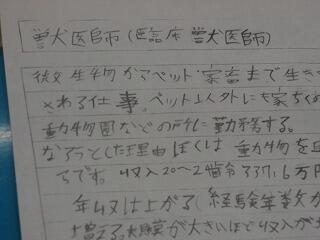 獣医師(臨床獣医師)
微生物かマペット家畜まで生き
される仕事。ペット以外にも家ちく
動物園などの所に勤務する。
なろうとした理由ぼくは動物を
らです。収入20~2 337,6万円
年収は上がる(経験年数が
増える。規模が大きいほど収入が